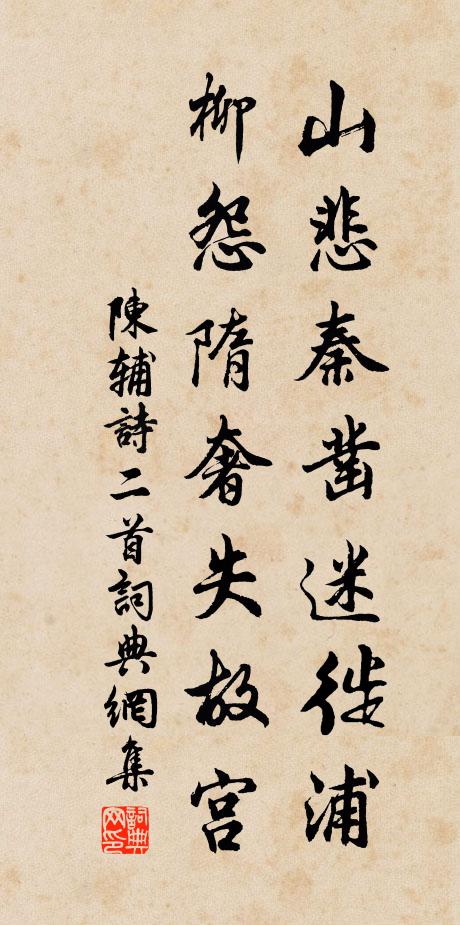 山悲秦凿迷徙浦
柳怨隋奢失故宫
陳辅詩二首詞典網集
詞典网印